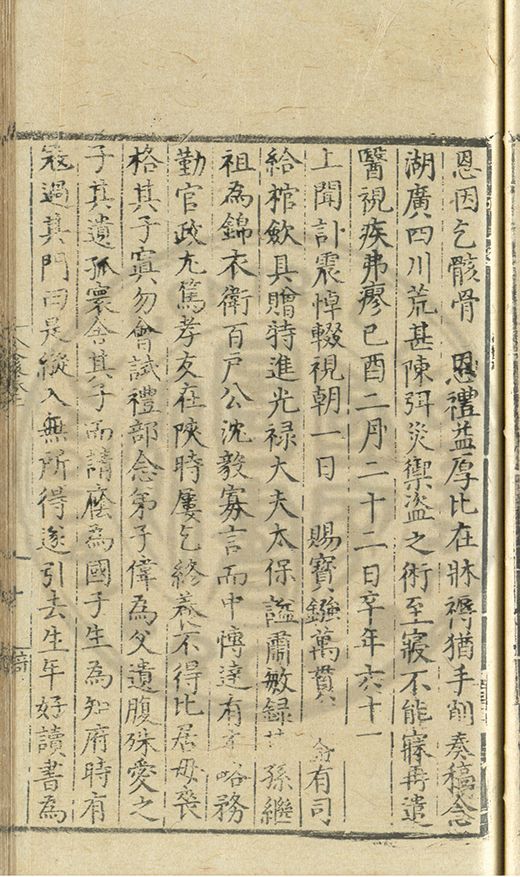 恩因乞骸骨 恩禮益厚比在牀褥猶手削奏稿念
湖廣四川荒甚陳弭災禦盜之術至寢不能寐再遣
醫視疾弗瘳已酉二月二十二日卒年六十一
上聞訃震悼輟視朝一日 賜寶鏹萬貫 命有司
給棺歛具贈特進光禄大夫太保謚肅敏録其孫繼
祖為錦衣衛百戸公沈毅寡言而中慱達有 畧務
勤官政尤篤孝友在陝時屢乞終養不得比居母喪
格其子寘勿會試禮部念弟子偉為父遺腹殊愛之
子真遺孤寰舍其子而請廕為國子生為知府時有
宼過其門曰是縱入無所得遂引去生平好讀書為